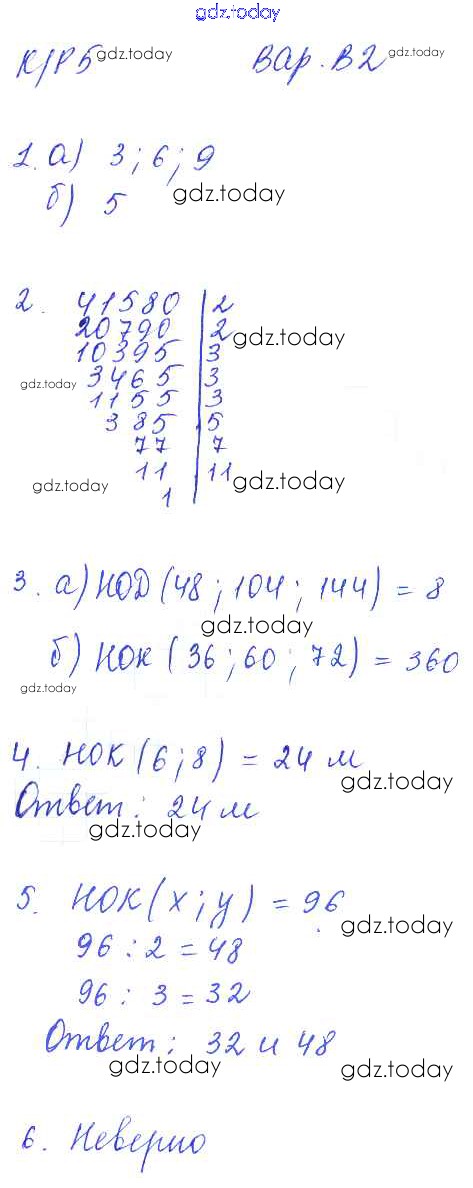 gdz.today
К/Р 5 gdz.today Вар. В2 gdz.today
1. а) 3; 6; 9
б) 5 gdz.today
2. 41580 | 2
20790 | 2 gdz.today
10395 | 3
gdz.today 3465 | 3
1155 | 3
385 | 5
77 | 7
gdz.today 11 | 11 gdz.today
1
3. а) НОД (48; 104; 144) = 8
gdz.today
б) НОК (36; 60; 72) = 360
gdz.today
4. НОК (6; 8) = 24 м
gdz.today
Ответ: 24 м
gdz.today
5. НОК (x; y) = 96
gdz.today
96 : 2 = 48
96 : 3 = 32
Ответ: 32 и 48
gdz.today gdz.today
6. Неверно